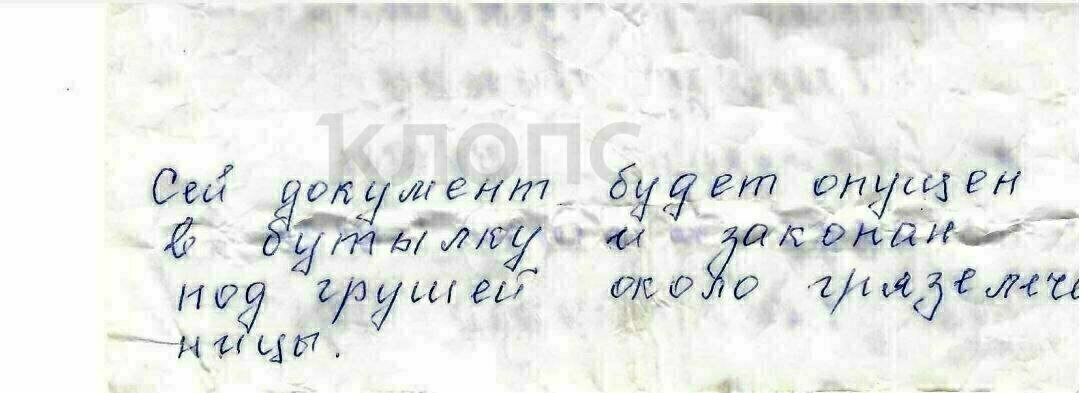 Клопс
Сей документ будет опущен
в бутылку и закопан
под грушей около грязелече
ницы.